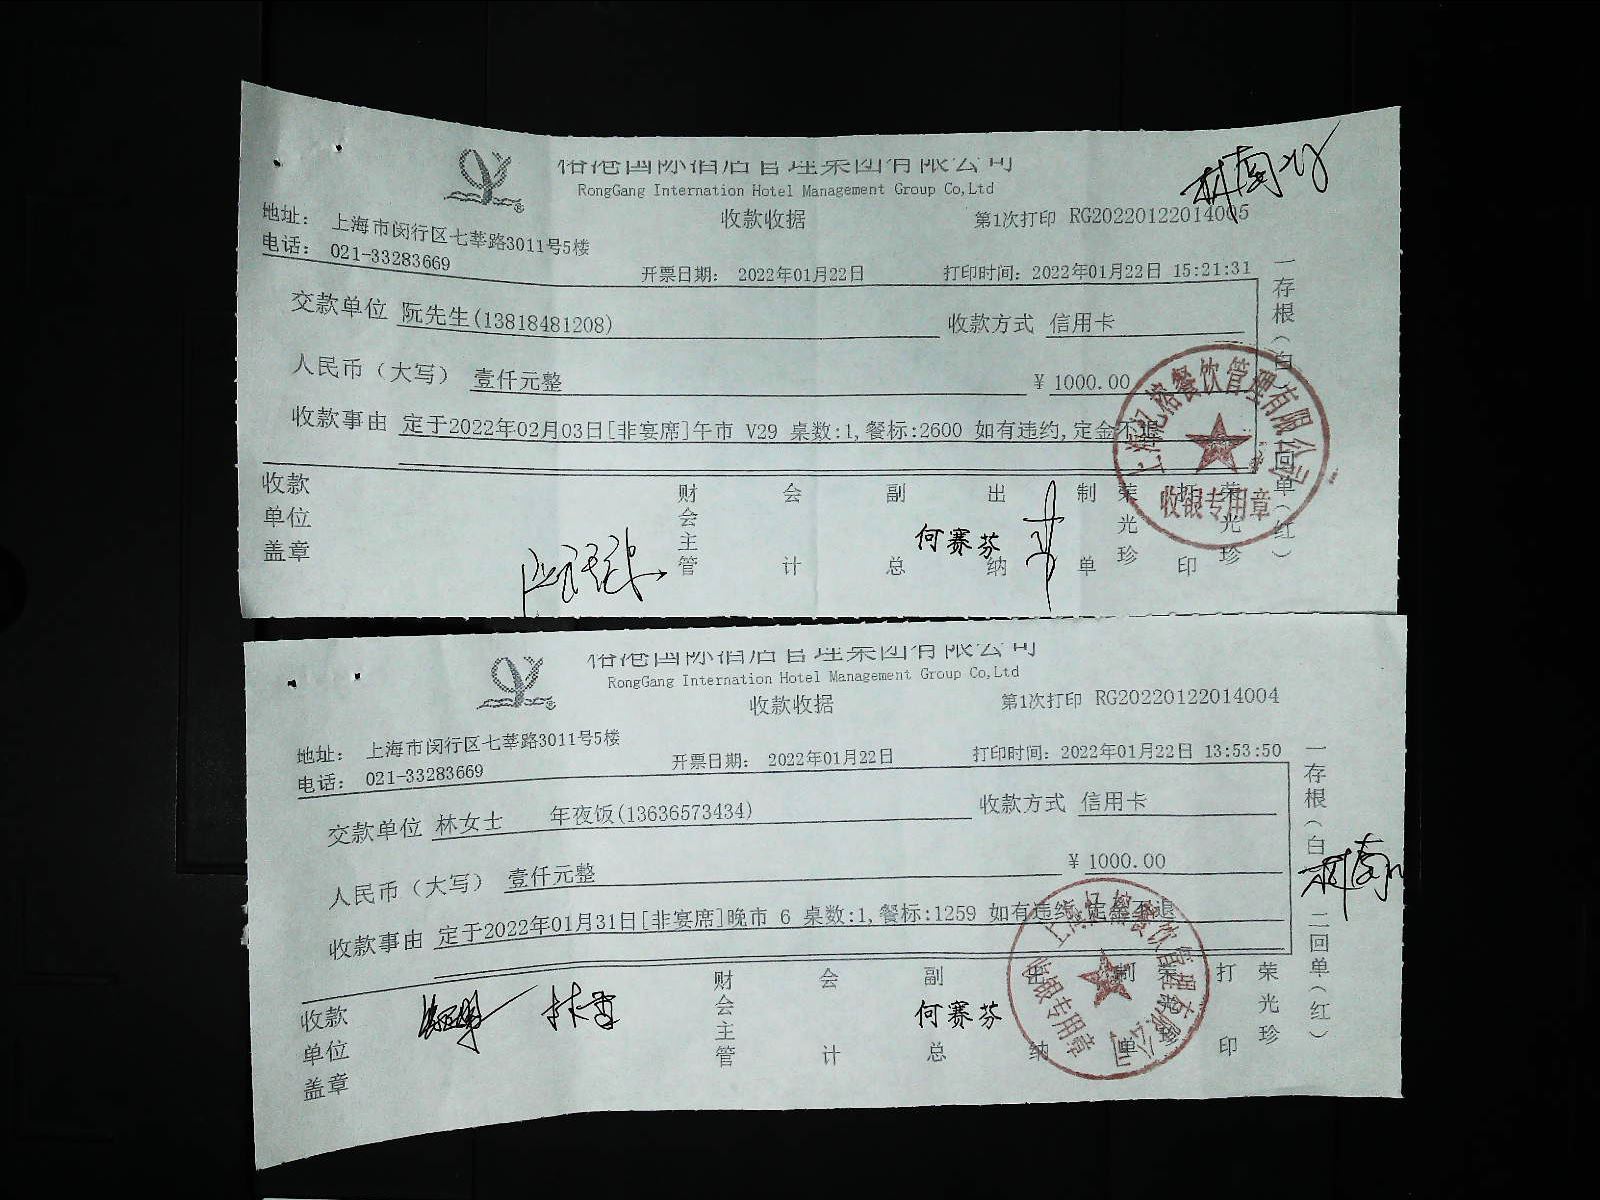 榕港国际酒店管理集团有限公司
RongGang Internation Hotel Management Group Co,Ltd
收款收据
第1次打印 RG20220122014005
地址： 上海市闵行区七莘路3011号5楼
电话： 021-33283669
开票日期： 2022年01月22日
打印时间：2022年01月22日 15:21:31
交款单位 阮先生(13818481208)
收款方式 信用卡
人民币（大写） 壹仟元整
¥ 1000.00
收款事由 定于2022年02月03日[非宴席]午市 V29 桌数:1,餐标:2600 如有违约,定金不退
一存根（白） 二回单（红）
收款单位盖章
财会主管
会计
副总
何赛芬
出纳
制单
荣光珍
打印
荣光珍
餐饮管理有限公司
收银专用章
榕港国际酒店管理集团有限公司
RongGang Internation Hotel Management Group Co,Ltd
收款收据
第1次打印 RG20220122014004
地址： 上海市闵行区七莘路3011号5楼
电话： 021-33283669
开票日期： 2022年01月22日
打印时间：2022年01月22日 13:53:50
交款单位 林女士 年夜饭(13636573434)
收款方式 信用卡
人民币（大写） 壹仟元整
¥ 1000.00
收款事由 定于2022年01月31日[非宴席]晚市 6 桌数:1,餐标:1259 如有违约,定金不退
一存根（白 二回单（红）
收款单位盖章
财会主管
会计
副总
何赛芬
出纳
制单
打印
荣光珍
餐饮管理有限公司
收银专用章